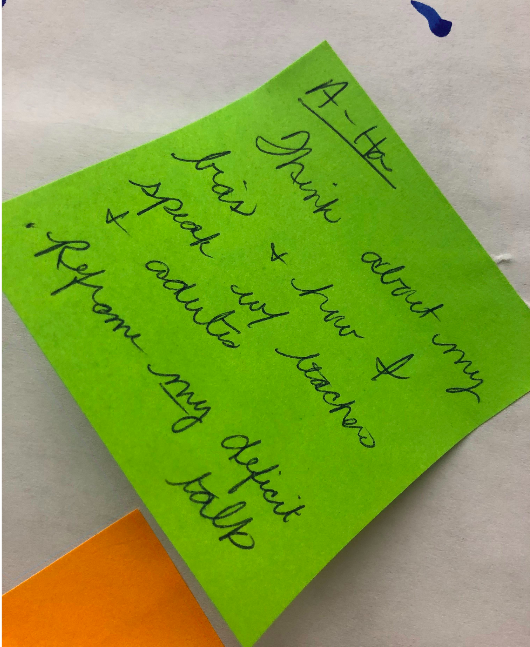 A-Ha
Think about my
bias & how I
speak w/ teachers
& adults
• Reframe my deficit
talk